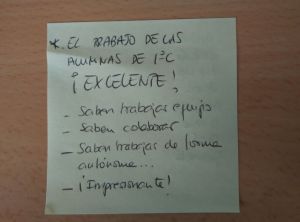 *. EL TRABAJO DE LAS
ALUMNAS DE 1ºC
¡EXCELENTE!
- Saben trabajar equipo
- Saben colaborar
- Saben trabajar de forma
autónoma...
- ¡Impresionante!